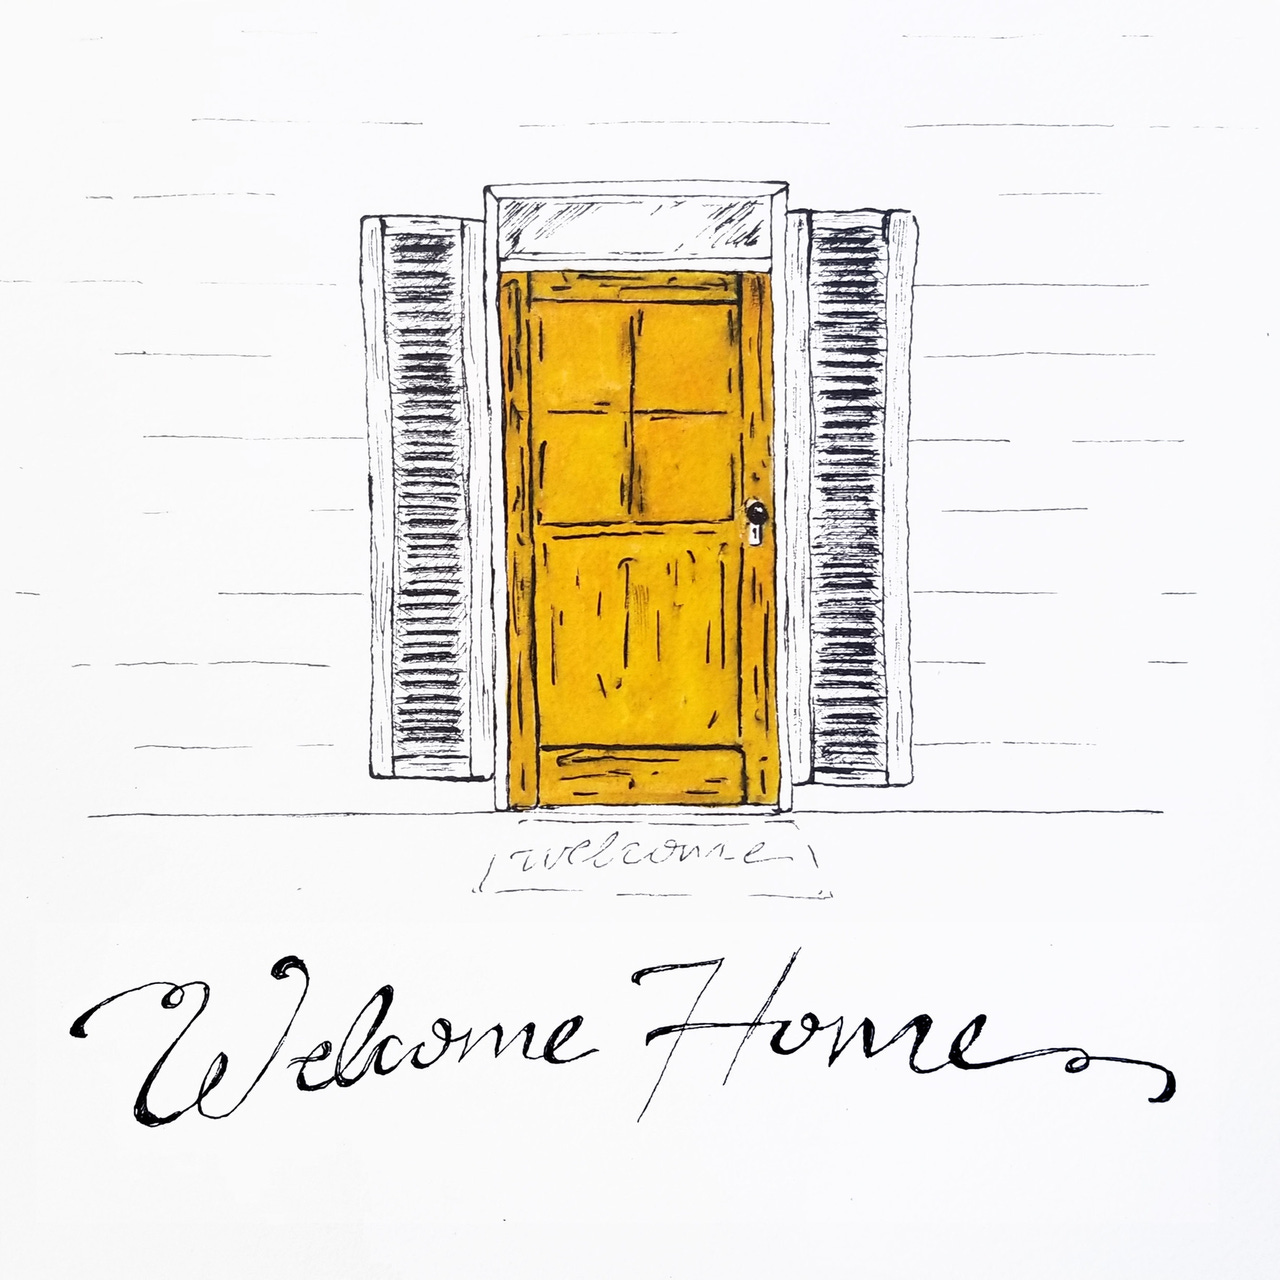 welcome
Welcome Home